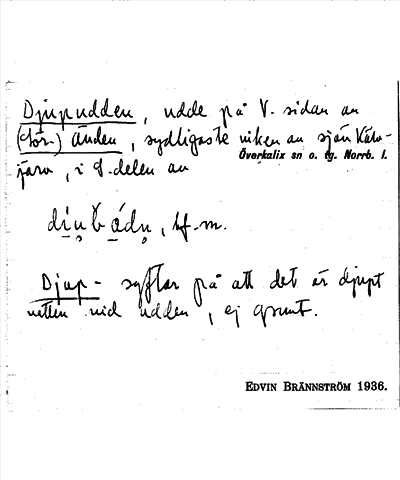 Djupudden, udde på V. sidan av
(Stor-) änden, sydligaste viken av sjön Kär-
järv, i S. delen av
Överkalix sn o. tg. Norrb. l.
bf. m.
Djup- syftar på att det är djupt
vatten vid udden, ej grunt.
EDVIN BRÄNNSTRÖM 1936.